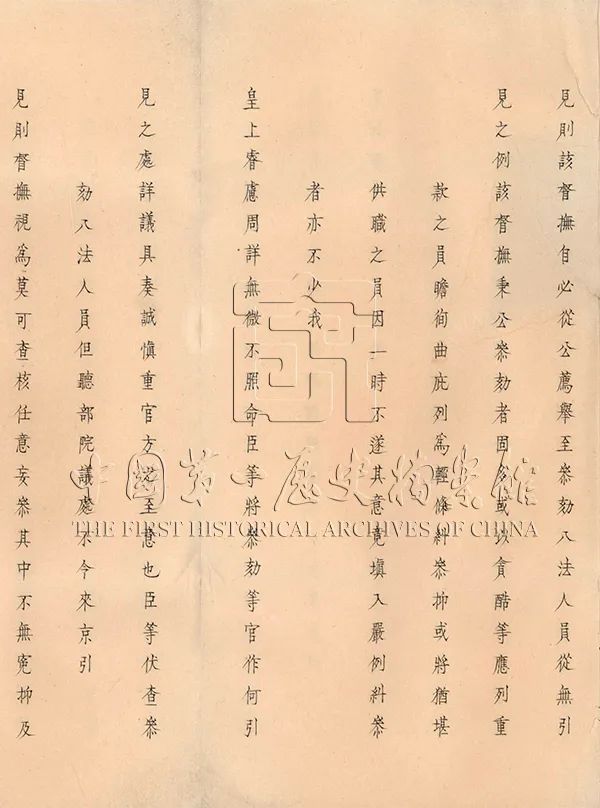 見則該督撫自必從公薦舉至叅劾八法人員從無引
見之例該督撫秉公叅劾者固多或以貪酷等應列重
款之員瞻徇曲庇列為輕條糾叅抑或將猶堪
供職之員因一時不遂其意竟填入嚴例糾叅
者亦不少我
皇上睿慮周詳無微不照命臣等將叅劾等官作何引
見之處詳議具奏誠慎重官方之至意也臣等伏查叅
劾八法人員但聽部院議處不令來京引
見則督撫視爲莫可查核任意妄叅其中不無寃抑及
中国第一历史档案馆
THE FIRST HISTORICAL ARCHIVES OF CHINA